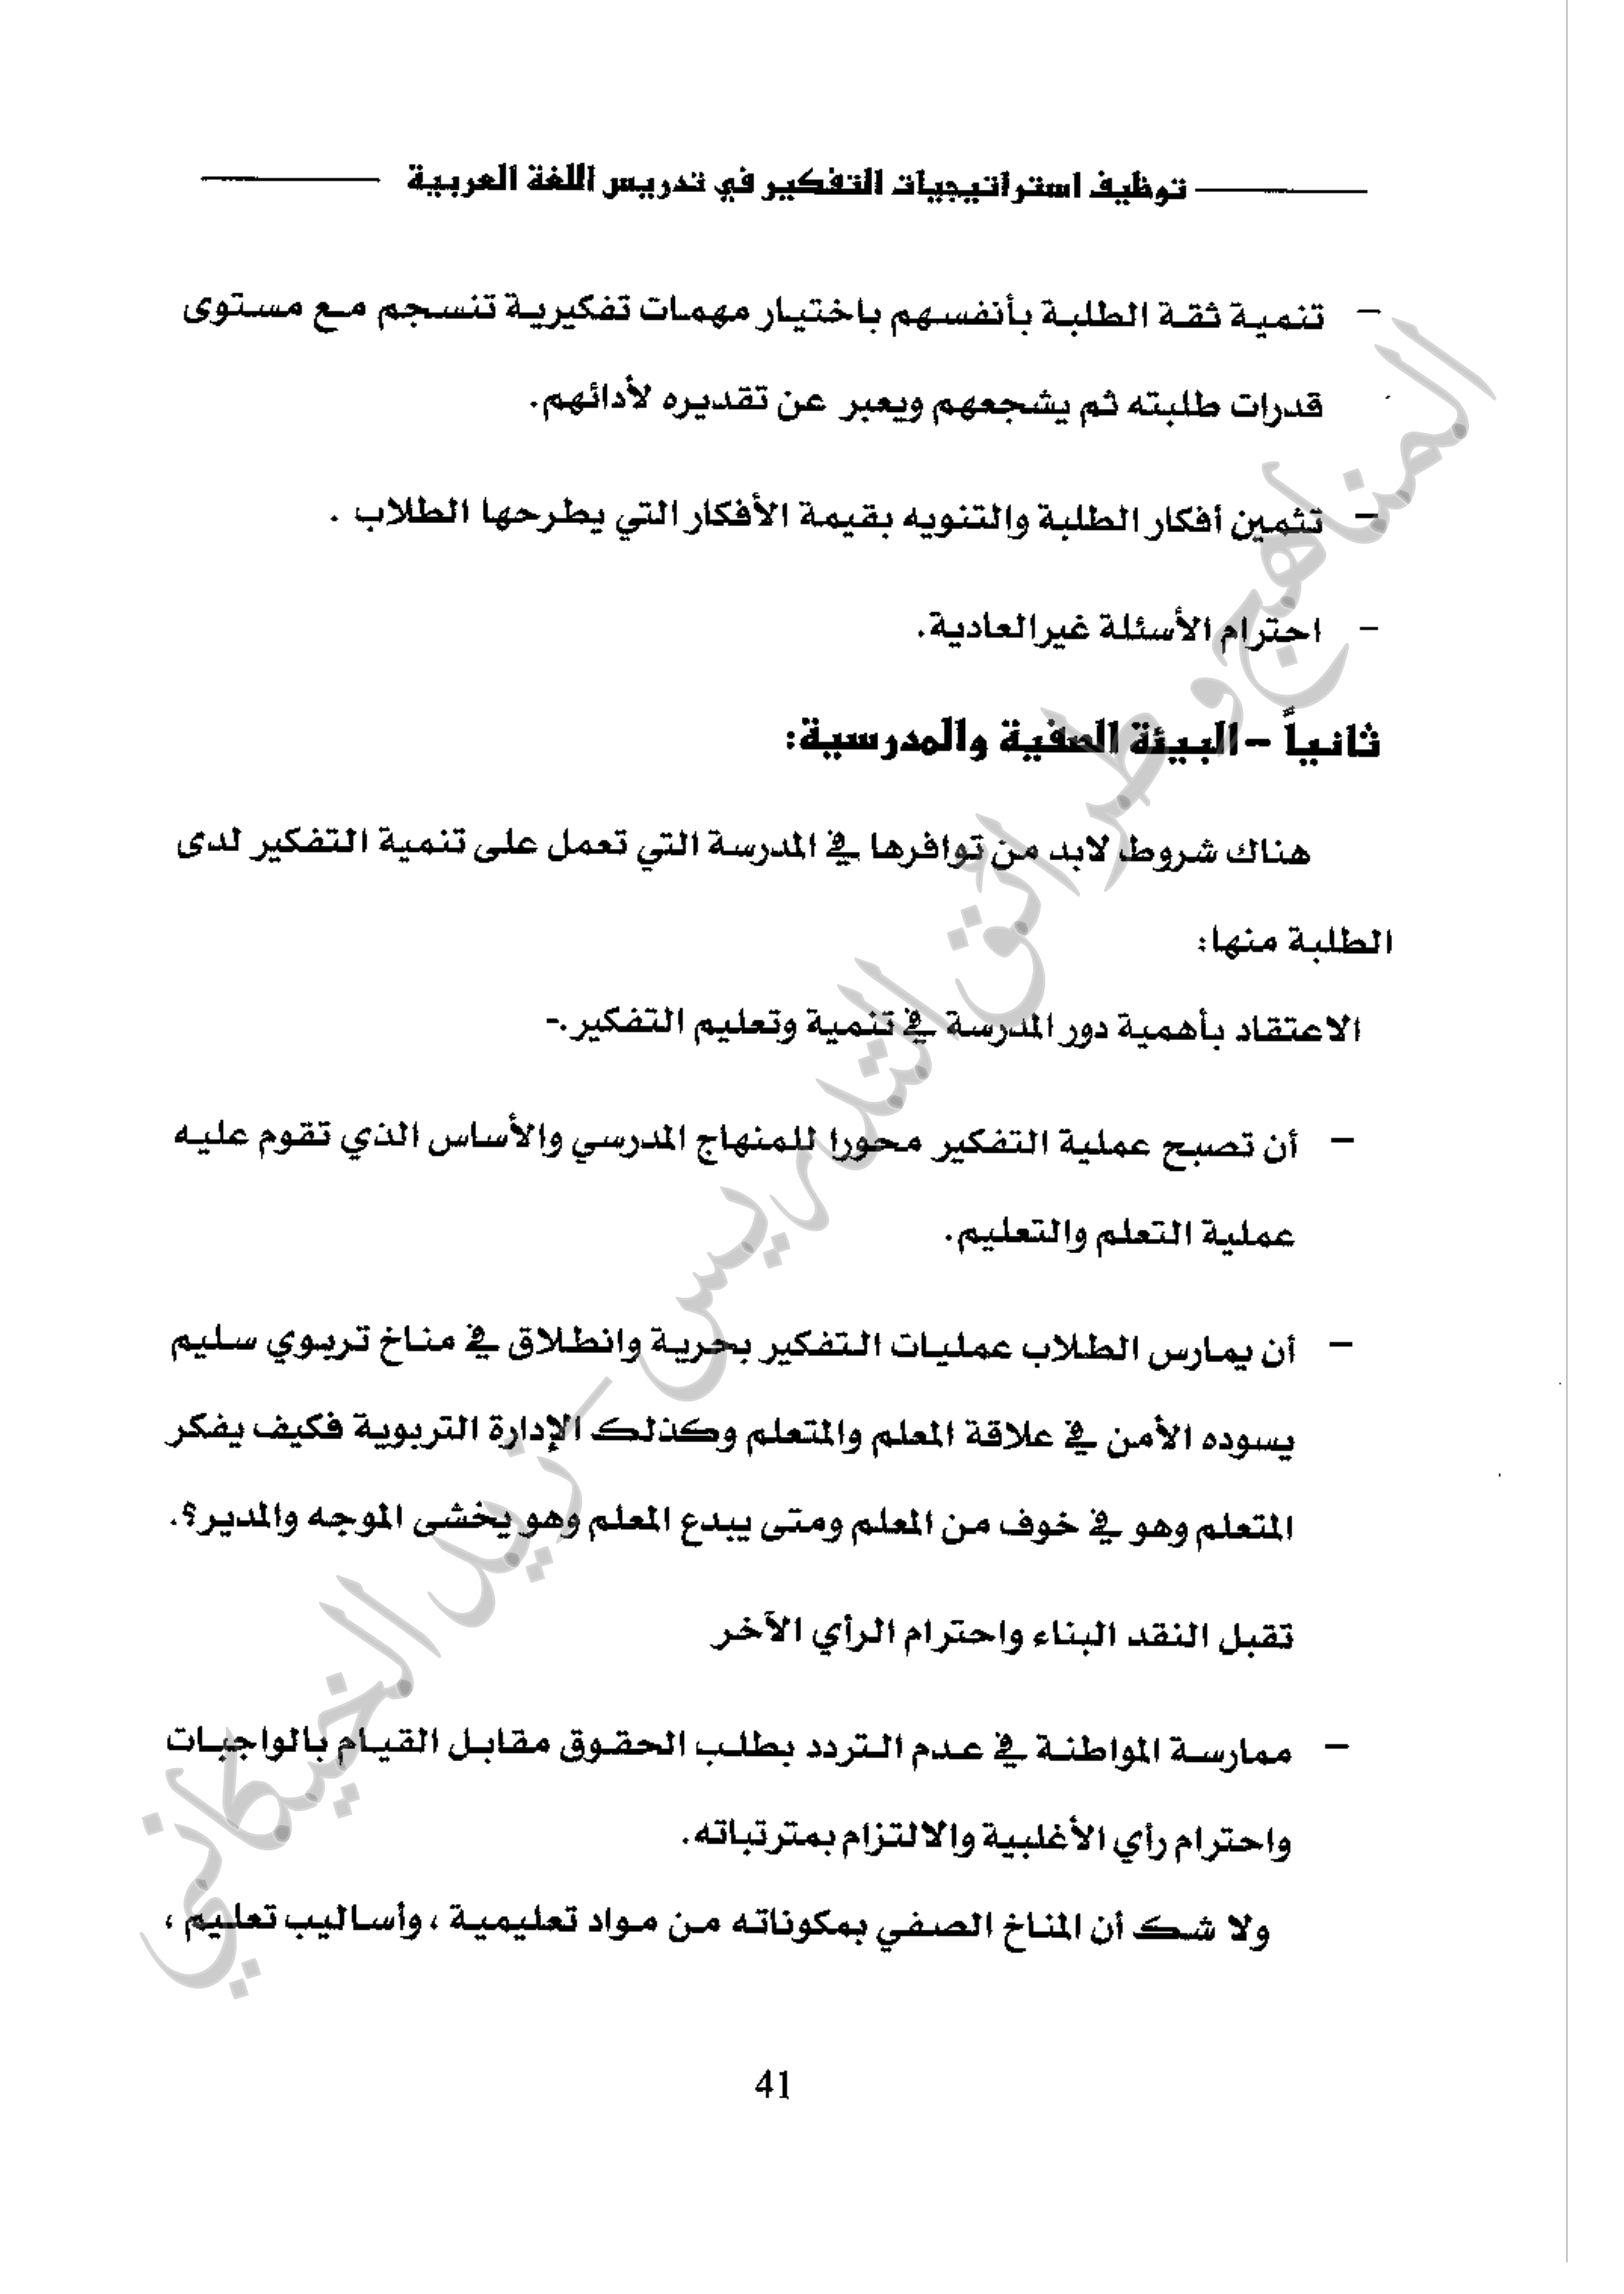 توظيف استراتيجيات التفكير في تدريس اللغة العربية
- تنمية ثقة الطلبة بأنفسهم باختيار مهمات تفكيرية تنسجم مع مستوى
قدرات طلبته ثم يشجعهم ويعبر عن تقديره لأدائهم.
- تثمين أفكار الطلبة والتنويه بقيمة الأفكار التي يطرحها الطلاب .
- احترام الأسئلة غير العادية.
ثانياً - البيئة الصفية والمدرسية:
هناك شروط لابد من توافرها في المدرسة التي تعمل على تنمية التفكير لدى
الطلبة منها:
الاعتقاد بأهمية دور المدرسة في تنمية وتعليم التفكير.-
- أن تصبح عملية التفكير محورا للمنهاج المدرسي والأساس الذي تقوم عليه
عملية التعلم والتعليم.
- أن يمارس الطلاب عمليات التفكير بحرية وانطلاق في مناخ تربوي سليم
يسوده الأمن في علاقة المعلم والمتعلم وكذلك الإدارة التربوية فكيف يفكر
المتعلم وهو في خوف من المعلم ومتى يبدع المعلم وهو يخشى الموجه والمدير؟.
تقبل النقد البناء واحترام الرأي الآخر
- ممارسة المواطنة في عدم التردد بطلب الحقوق مقابل القيام بالواجبات
واحترام رأي الأغلبية والالتزام بمترتباته.
ولا شك أن المناخ الصفي بمكوناته من مواد تعليمية ، وأساليب تعليم ،
41
المناهج وطرائق التدريس - زيد الخيكاني